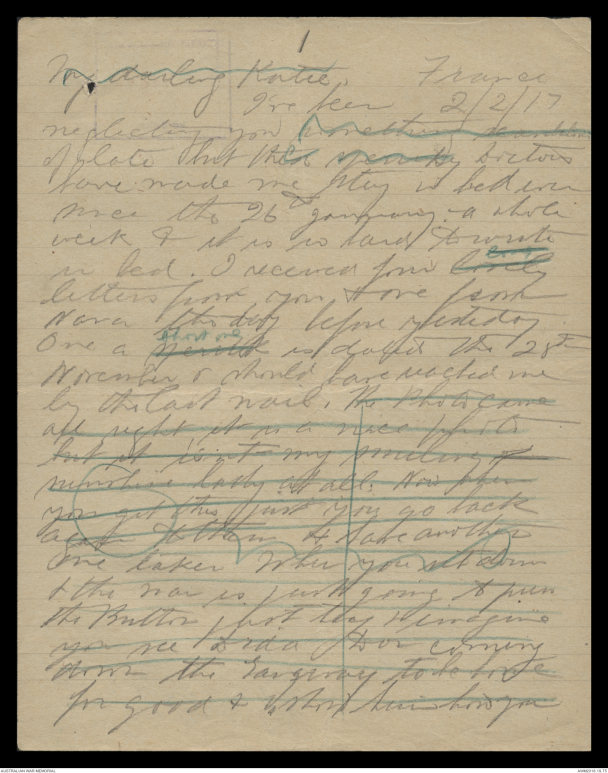 1
My darling Katie, France
I've been 2/2/17
neglecting you something
of late but the Doctors
have made me stay in bed ever
since the 26th January. a whole
week & it is so hard to write
in bed. I received four lovely
letters from you & one from
Nana the day before yesterday.
short one
One a is dated the 28th
November & should have reached me
by the last mail. The Photo came
all right it is a nice photo
but it isn't my smiling
sunshine lady at all. Now when
you get this just you go back
again to them & have another
one taken When you sit down
& the man is just going to press
the Button just try & imagine
you see Dida Don coming
down the Gangway to be home
for good & show him how you
AUSTRALIAN WAR MEMORIAL